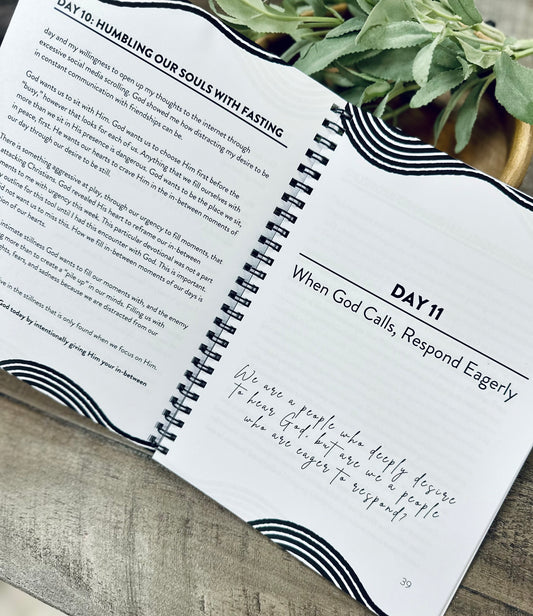 DAY 10: HUMBLING OUR SOULS WITH FASTING
day and my willingness to open up my thoughts to the internet through
excessive social media scrolling. God showed me how distracting my desire to be
in constant communication with friendships can be.
God wants us to sit with Him. God wants us to choose Him first before the
"busy," however that looks for each of us. Anything that we fill ourselves with
more than we sit in His presence is dangerous. God wants to be the place we sit,
in peace, first. He wants our hearts to crave Him in the in-between moments of
our day through our desire to be still.
There is something aggressive at play, through our urgency to fill moments, that
attacking Christians. God revealed His heart to reframe our in-between
ments to me with urgency this week. This particular devotional was not a part
outline for this tool until I had this encounter with God. This is important.
not want us to miss this. How we fill in-between moments of our days is
of our hearts.
intimate stillness God wants to fill our moments with, and the enemy
more than to create a "pile up" in our minds. Filling us with
fears, and sadness because we are distracted from our
in the stillness that is only found when we focus on Him.
God today by intentionally giving Him your in-between
DAY 11
When God Calls, Respond Eagerly
We are a people who deeply desire
to hear God, but are we a people
who are eager to respond?
39